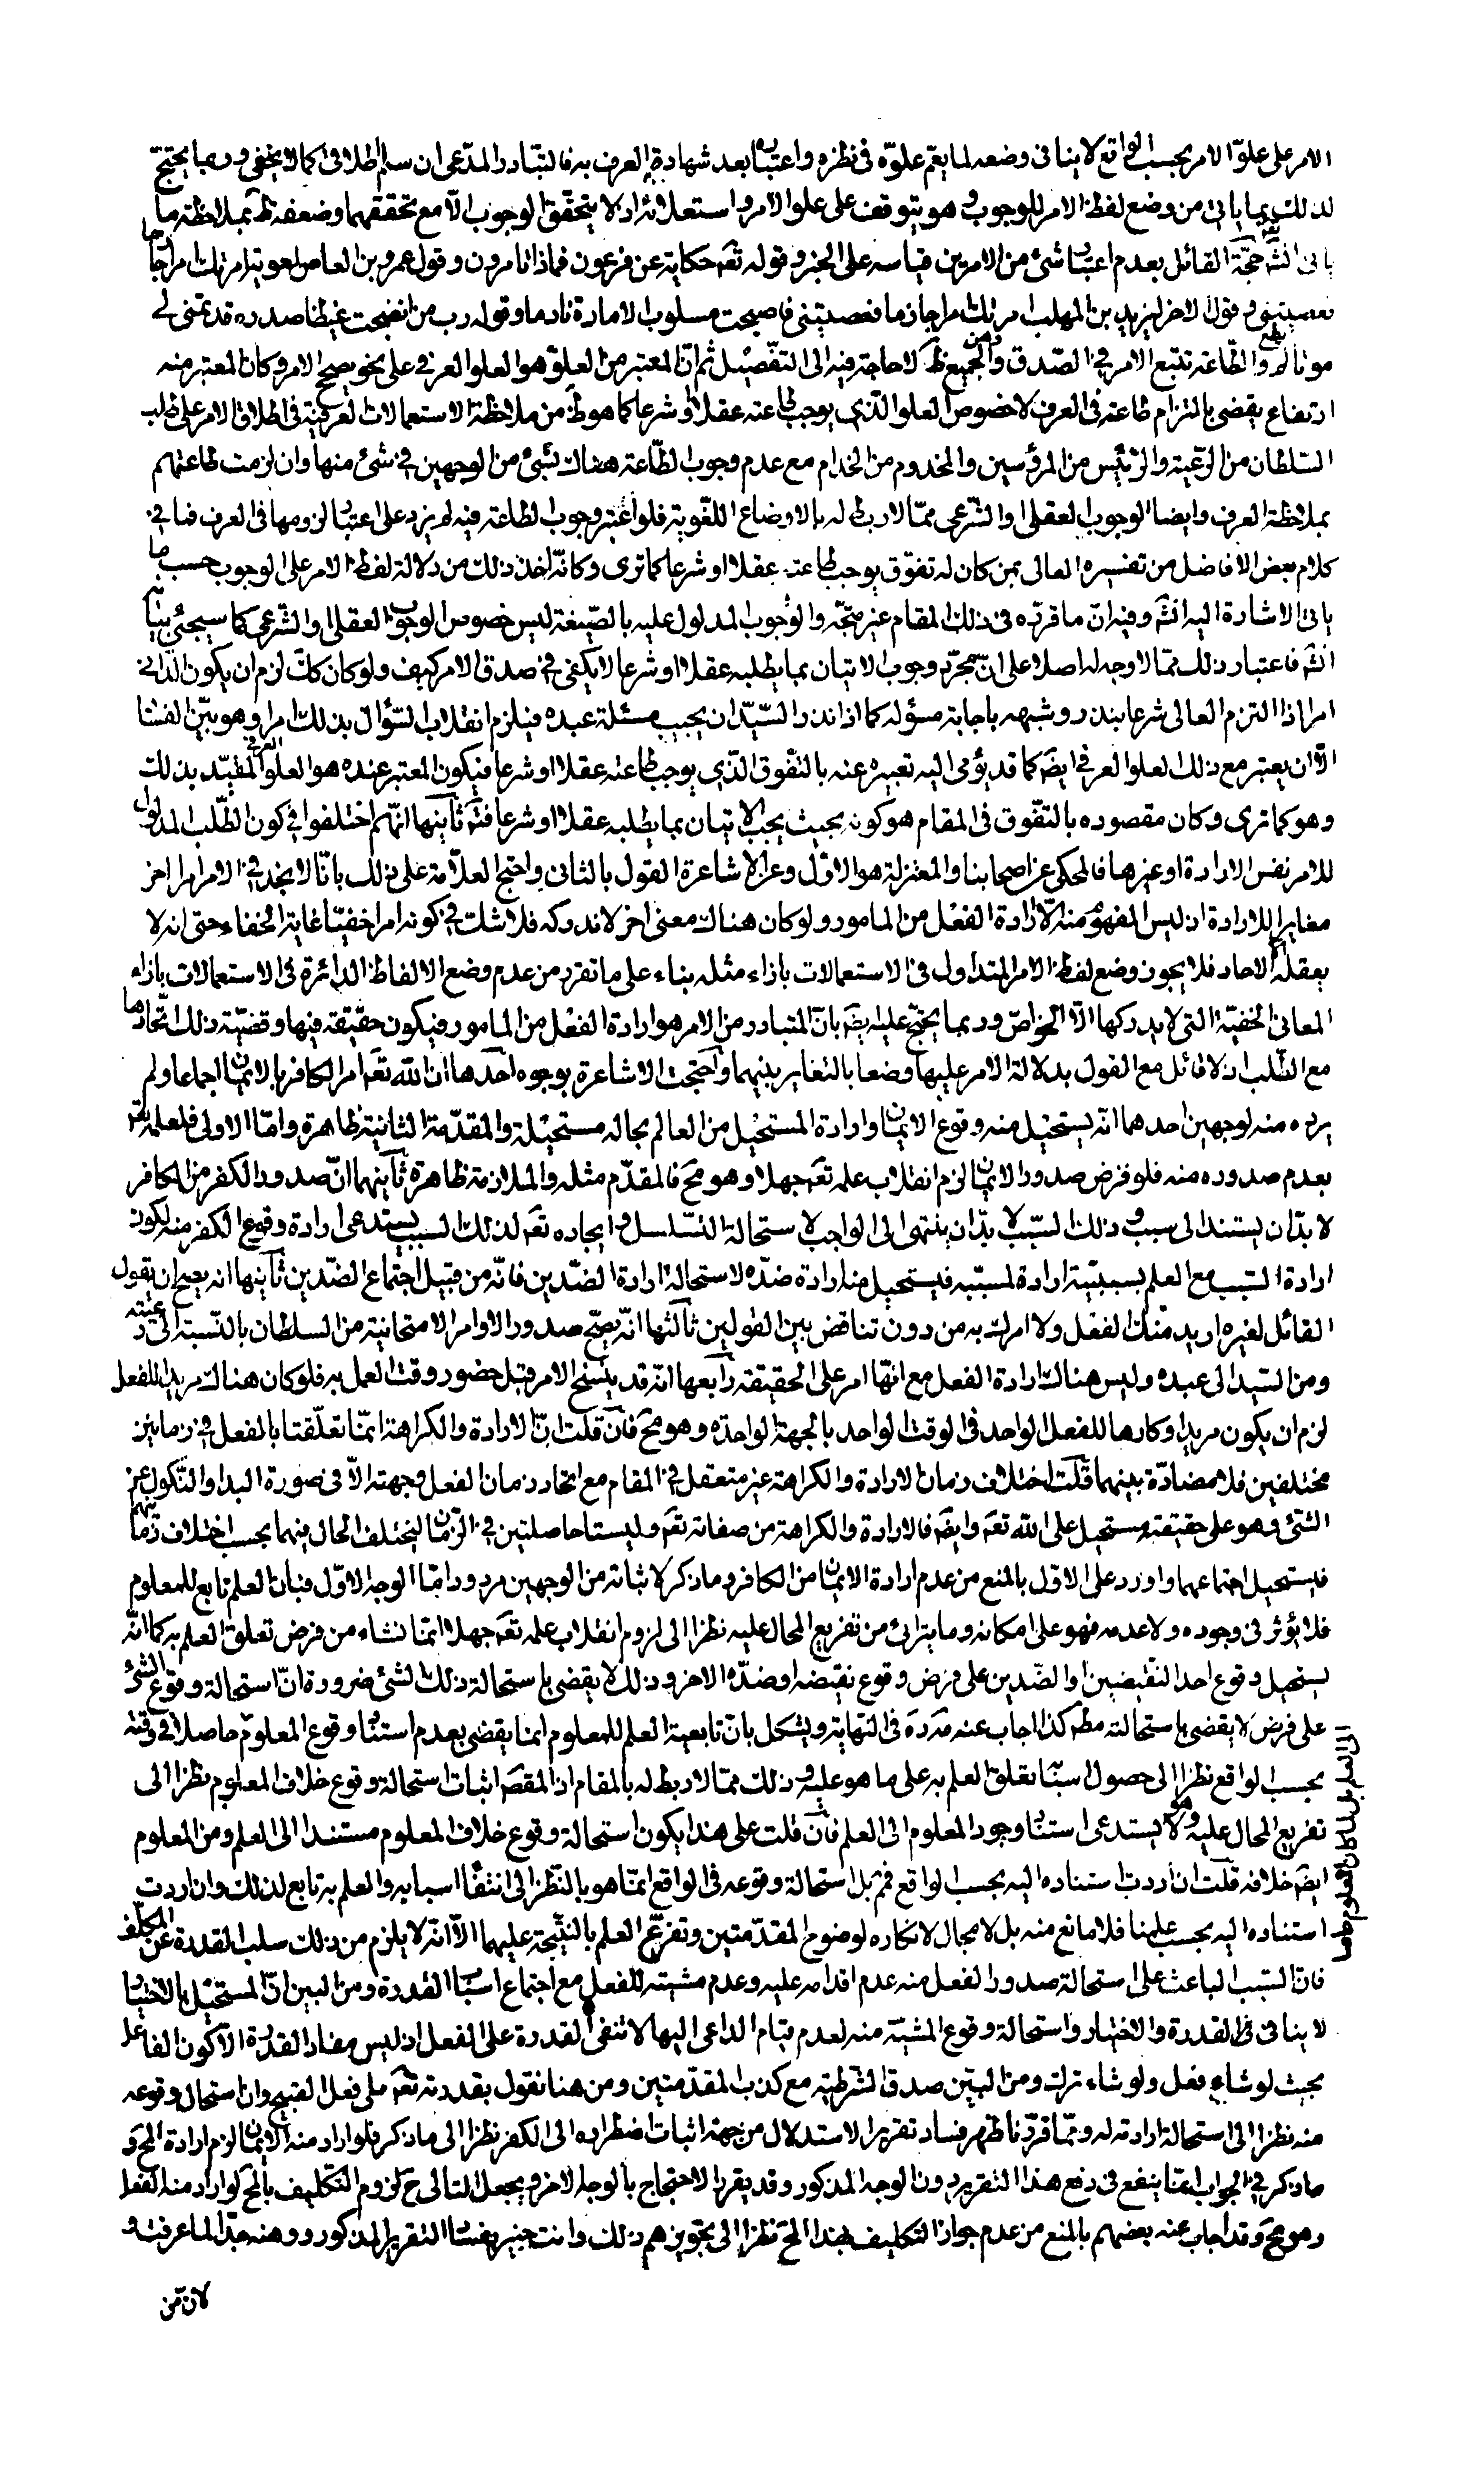 الامر على علوّ الامر بحسب الواقع لا ينافى وضعه لما يعمّ علوّه فى نظره واعتباره بعد شهادة العرف به فالتبادر المدّعى ان سلم اطلاقى كما لا يخفى وربما يحتج
لذلك بما ياتى من وضع لفظ الامر للوجوب وهو يتوقف على علو الامر واستعلائه اذ لا يتحقّق الوجوب الّا مع تحققهما وضعفه ظ بملاحظة ما
ياتى انشَ حجّة القائل بعدم اعتبار شئ من الامرين قياسه على الخبر وقوله تعَ حكاية عن فرعون فماذا تامرون وقول عمرو بن العاص لمعوية امرتك امرا جازما
فعصيتنى وقول الاخر ليزيد بن المهلب امرتك امرا جازما فعصيتنى فاصبحت مسلوب الامارة نادما وقوله رب من انضجت غيظا صدره قد تمنى لى
موتا لم يطع والطّاعة تتبع الامر فى الصّدق والجميع ظَ لا حاجة فيه الى التفصيل ثم انّ المعتبر من العلوّ هو العلو العرفى على نحو يصح الامر وكان المعتبر منه
ارتفاع يقضى بالتزام طاعته فى العرف لا خصوص العلو الّذى يوجب طاعته عقلا او شرعا كما هو ظَ من ملاحظة الاستعمالات العرفية فى اطلاق الامر على طلب
السّلطان من الرّعية والرّئيس من المرؤسين والمخدوم من الخدام مع عدم وجوب الطّاعة هناك بشئ من الوجهين فى شئ منها وان لزمت طاعتهم
بملاحظة العرف وايضا الوجوب العقلى او الشّرعى ممّا لا ربط له بالاوضاع اللّغوية فلو اعتبر وجوب الطاعة فيه لم يزد على اعتبار لزومها فى العرف فما فى
كلام بعض الافاضل من تفسيره العالى بمن كان له تفوّق يوجب طاعته عقلا او شرعا كما ترى وكانّه اخذ ذلك من دلالة لفظ الامر على الوجوب حسب ما
ياتى الاشارة اليه انشَ وفيه انّ ما قرّره فى ذلك المقام غير متّجه والوجوب المدلول عليه بالصّيغة ليس خصوص الوجوب العقلى والشّرعى كما سيجئ بيانه
انشَ فاعتبار ذلك ممّا لا وجه له اصلا على انّ مجرّد وجوب الاتيان بما يطلبه عقلا او شرعا لا يكفى فى صدق الامر كيف ولو كان كَك لزم ان يكون الدّانى
امرا اذا التزم العالى شرعا بنذر وشبهه باجابة مسؤله كما اذا نذر السّيّد ان يجيب مسئلة عبده فيلزم انقلاب السّؤال بذلك امرا وهو بيّن الفساد
الّا ان يعتبر مع ذلك العلو العرفى ايضَ كما قد يؤمى اليه تعبيره عنه بالتفوق الّذى يوجب طاعته عقلا او شرعا فيكون المعتبر عنده هو العلو العرفى المقيّد بذلك
وهو كما ترى وكان مقصوده بالتفوّق فى المقام هو كونه بحيث يجب الاتيان بما يطلبه عقلا او شرعا فتَ ثانيها انّهم اختلفوا فى كون الطّلب المدلول
للامر نفس الارادة او غيرها فالمحكى عن اصحابنا والمعتزلة هو الاوّل وعن الاشاعرة القول بالثانى واحتج العلّامة على ذلك بانّا لا نجد فى الامر امرا اخر
مغايرا للارادة اذ ليس المفهوم منه الّا ارادة الفعل من المامور ولو كان هناك معنى اخر لا ندركه فلا شك فى كونه امرا خفيّا غاية الخفاء حتى انه لا
يعقله الاحاد فلا يجوز وضع لفظ الامر المتداول فى الاستعمالات بازاء مثله بناء على ما تقرر من عدم وضع الالفاظ الدائرة فى الاستعمالات بازاء
المعانى الخفيّة التى لا يدركها الّا الخواصّ وربما يحتج عليه ايضَ بانّ المتبادر من الامر هو ارادة الفعل من المامور فيكون حقيقة فيها وقضيّة ذلك اتّحادها
مع الطّلب اذ لا قائل مع القول بدلالة الامر عليها وضعا بالتغاير بينهما واحتجت الاشاعرة بوجوه احدها ان اللّه تعَ امر الكافر بالايمان اجماعا ولم
يرده منه لوجهين احدهما انّه يستحيل منه وقوع الايمان وارادة المستحيل من العالم بحاله مستحيلة والمقدّمة الثانية ظاهرة وامّا الاولى فلعلمه تعَ
بعدم صدوره منه فلو فرض صدور الايمان لزم انقلاب علمه تعَ جهلا وهو مح فالمقدّم مثله والملازمة ظاهرة ثانيهما انّ صدور الكفر من الكافر
لا بدّ ان يستند الى سبب وذلك السّبب لا بدّ ان ينتهى الى الواجب لاستحالة التّسلسل وايجاده تعَ لذلك السبب يستدعى ارادة وقوع الكفر منه لكون
ارادة السّبب مع العلم بسببيّته ارادة لمسبّبه فيستحيل منه ارادة ضدّه لاستحالة ارادة الضّدين فانّه من قبيل اجتماع الضّدين ثانيها انه يصحّ ان يقول
القائل لغيره اريد منك الفعل ولا امرك به من دون تناقض بين القولين ثالثها انّه يصحّ صدور الاوامر الامتحانية من السلطان بالنّسبة الى رعيته
ومن السّيد الى عبده وليس هناك ارادة الفعل مع انّها امر على الحقيقة رابعها انّه قد ينسخ الامر قبل حضور وقت العمل به فلو كان هناك مريدا للفعل
لزم ان يكون مريدا وكارها للفعل الواحد فى الوقت الواحد بالجهة الواحدة وهو مح فان قلت انّ الارادة والكراهة انّما تعلّقتا بالفعل فى زمانين
مختلفين فلا مضادّة بينهما قلت اختلاف زمان الارادة والكراهة غير متعقل فى المقام مع اتحاد زمان الفعل وجهته الّا فى صورة البدا والنّكول عن
الشّئ وهو على حقيقته مستحيل على اللّه تعَ وايضَ فالارادة والكراهة من صفاته تعَ وليستا حاصلتين فى الزّمان ليختلف الحال فيهما بحسب اختلاف زمانهم
فيستحيل اجتماعهما واورد على الاوّل بالمنع من عدم ارادة الايمان من الكافر وما ذكر لاثباته من الوجهين مردود امّا الوجه الاوّل فبان العلم تابع للمعلوم
فلا يؤثر فى وجوده ولا عدمه فهو على امكانه وما يترائى من تفريع المحال عليه نظرا الى لزوم انقلاب علمه تعَ جهلا انّما نشاء من فرض تعلق العلم به كما انّه
يستحيل وقوع احد النّقيضين او الضّدين على فرض وقوع نقيضه او ضدّه الاخر وذلك لا يقضى باستحالة ذلك الشئ ضرورة انّ استحالة وقوع الشئ
على فرض لا يقضى باستحالته مطَ كذا اجاب عنه مَدَه فى النّهاية ويشكل بانّ تابعية العلم للمعلوم انما يقضى بعدم استناد وقوع المعلوم حاصلا فى وقته
الى العلم بل لما كان المعلوم حاصلا
بحسب الواقع نظرا الى حصول اسبابه تعلق العلم به على ما هو عليه وذلك ممّا لا ربط له بالمقام اذ المقصَ اثبات استحالة وقوع خلاف المعلوم نظرا الى
تفريع المحال عليه وهو لا يستدعى استناد وجود المعلوم الى العلم فان قلت على هذا يكون استحالة وقوع خلاف المعلوم مستندا الى العلم ومن المعلوم
ايضَ خلافه قلت ان اردت استناده اليه بحسب الواقع فمَ بل استحالة وقوعه فى الواقع انّما هو بالنّظر الى انتفاء اسبابه والعلم به تابع لذلك وان اردت
استناده اليه بحسب علمنا فلا مانع منه بل لا مجال لانكاره لوضوح المقدّمتين وتفرّع العلم بالنّتيجة عليهما الّا انّه لا يلزم من ذلك سلب القدرة عن المكلّف
فانّ السّبب الباعث على استحالة صدور الفعل منه عدم اقدامه عليه وعدم مشيته للفعل مع اجتماع اسباب القدرة ومن البين انّ المستحيل بالاختيار
لا ينافى القدرة والاختيار واستحالة وقوع المشيّة منه لعدم قيام الداعى اليها لا تنفى القدرة على الفعل اذ ليس مفاد القدرة الّا كون الفاعل
بحيث لو شاء فعل ولو شاء ترك ومن البيّن صدق الشّرطية مع كذب المقدّمتين ومن هنا نقول بقدرته تعَ على فعل القبيح وان استحال وقوعه
منه نظرا الى استحالة ارادته له وممّا قرّرنا ظهر فساد تقرير الاستدلال من جهة اثبات اضطراره الى الكفر نظرا الى ما ذكر فلو اراد منه الايمان لزم ارادة المح و
ما ذكر فى الجواب انّما ينفع فى دفع هذا التقرير دون الوجه المذكور وقد يقرر الاحتجاج بالوجه الاخر ويجعل التالى ح لزوم التّكليف بالمح لو اراد منه الفعل
وهو مح وقد اجاب عنه بعضهم بالمنع من عدم جواز التكليف بهذا المح نظرا الى تجويزهم ذلك وانت خبير بفساد التقرير المذكور ووهنه جدّا لما عرفت و
لانّ من